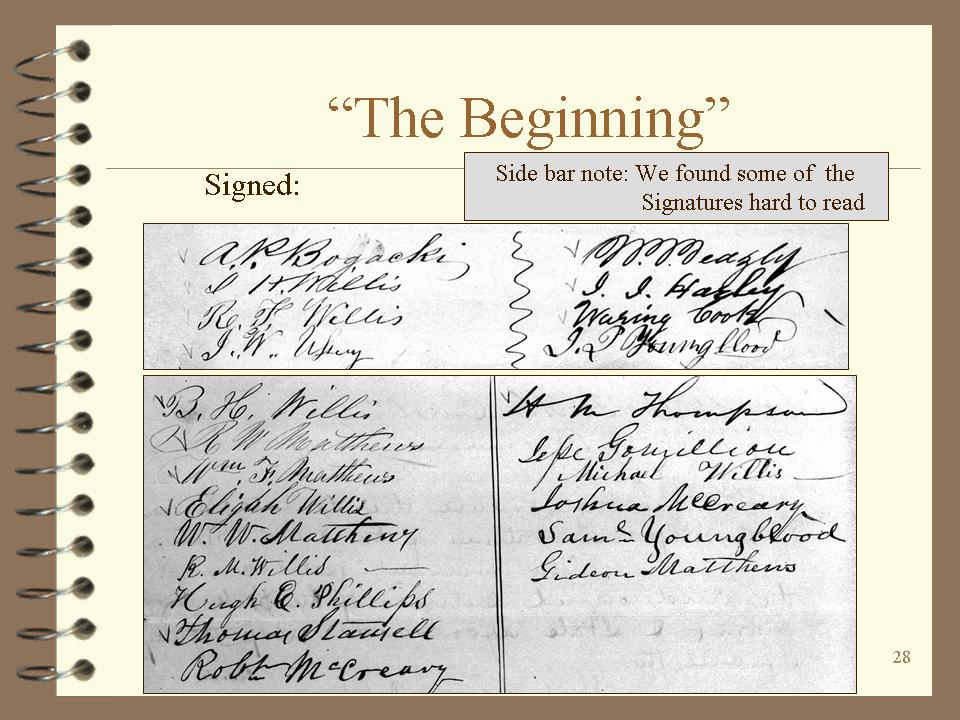 “The Beginning”
Signed:
Side bar note: We found some of the
Signatures hard to read
A. P. Bogacki
H. Willis
R. F. Willis
J. W.
J. J. Hagley
Waring Cook
J. P. Youngblood
B. H. Willis
R W Matthews
Wm. F. Matthews
Elijah Willis
W. W. Mattheny
R. M. Willis
Hugh E. Phillips
Thomas Stansell
Robt McCreary
H M Thompson
Jesse Gomillion
Michael Willis
Joshua McCreary
Saml Youngblood
Gideon Matthews
28